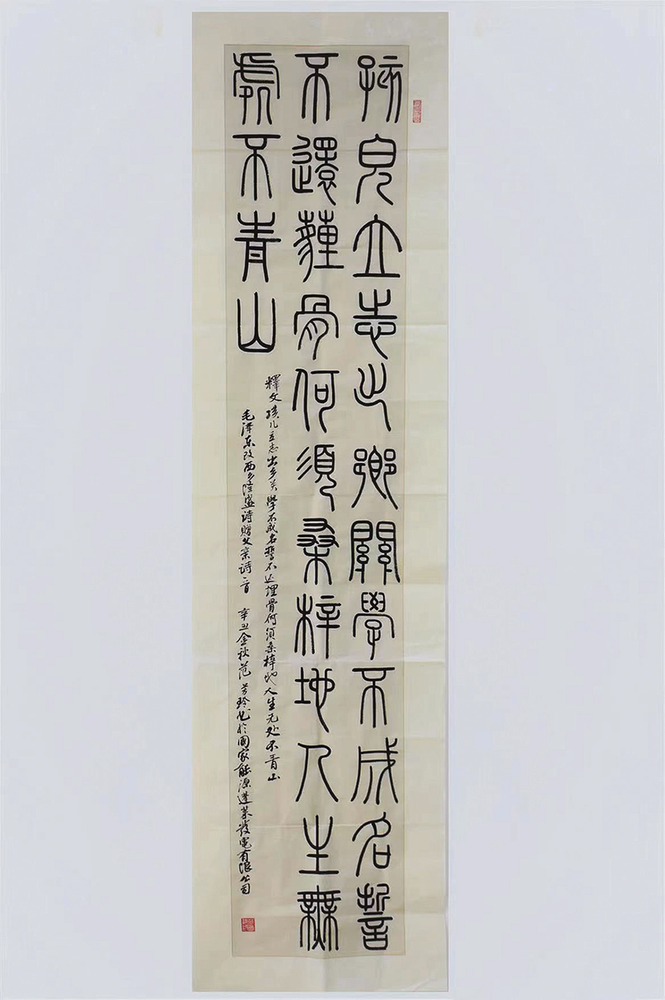 孩兒立志出鄉關學不成名誓
不還薶骨何須桑梓地人生無
處不青山
釋文 孩儿立志出乡关學不成名誓不还埋骨何须桑梓地人生无处不青山
毛泽东改西乡隆盛诗赠父亲诗一首 辛丑金秋范芳玲书於國家能源蓬莱發電有限公司